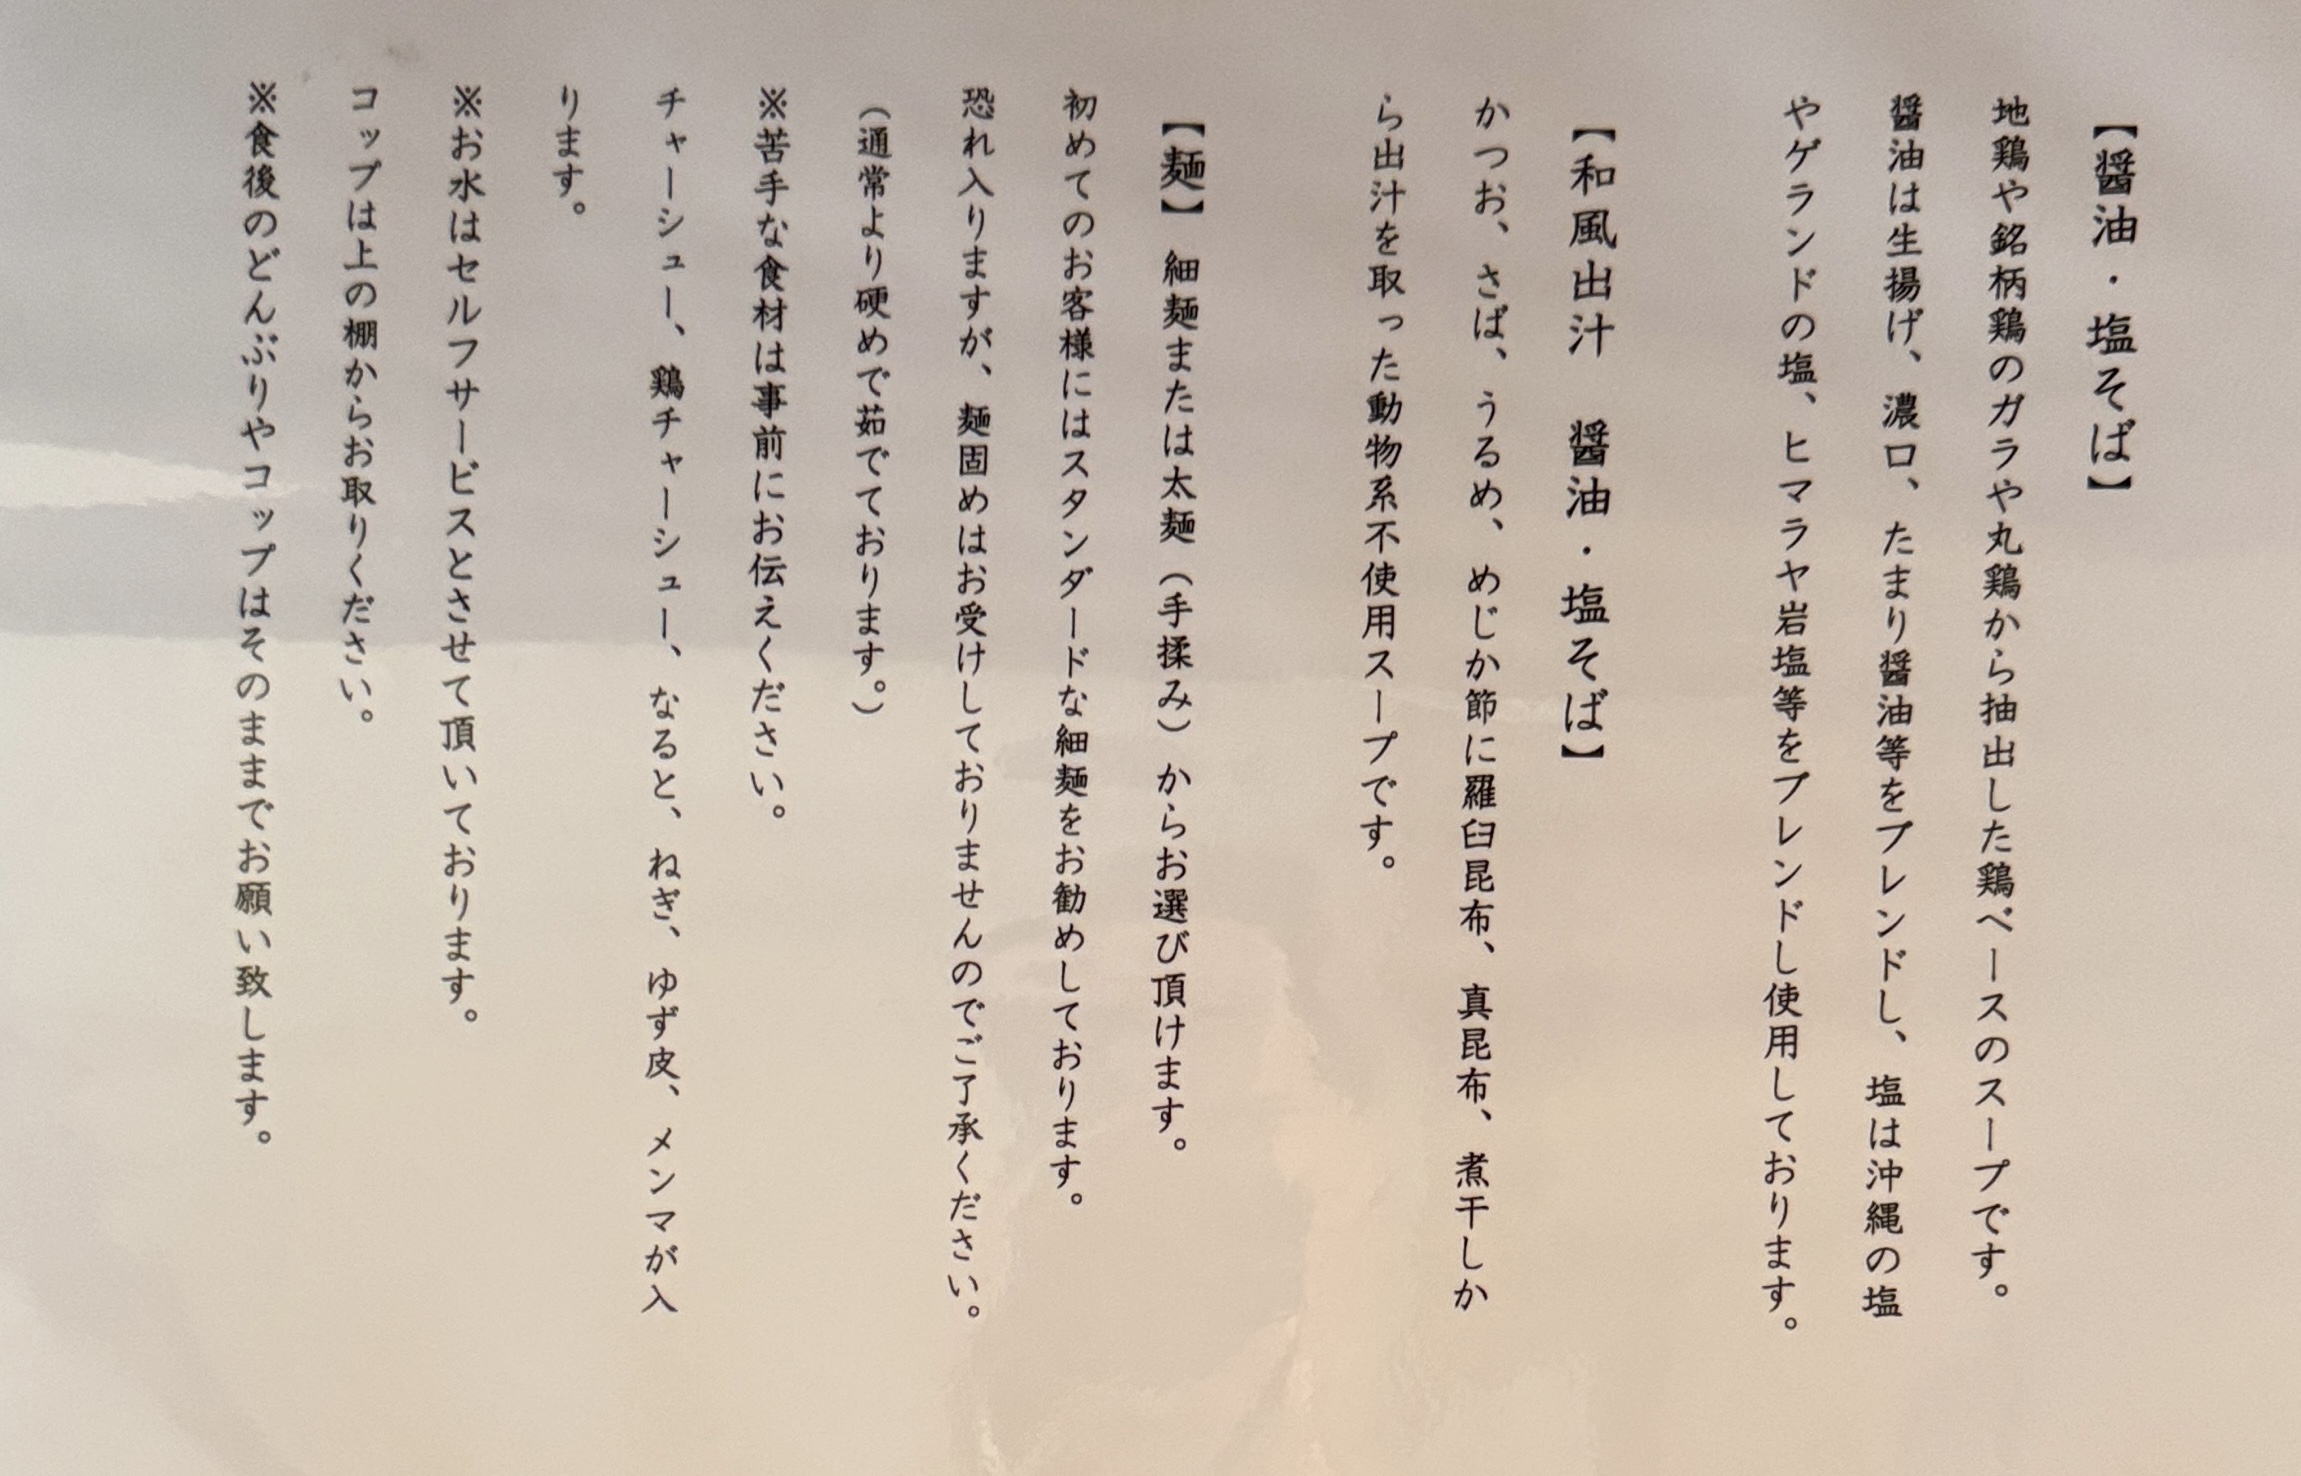 【醤油・塩そば】
地鶏や銘柄鶏のガラや丸鶏から抽出した鶏ベースのスープです。
醤油は生揚げ、濃口、たまり醤油等をブレンドし、塩は沖縄の塩
やゲランドの塩、ヒマラヤ岩塩等をブレンドし使用しております。
【和風出汁　醤油・塩そば】
かつお、さば、うるめ、めじか節に羅臼昆布、真昆布、煮干しか
ら出汁を取った動物系不使用スープです。
【麺】細麺または太麺（手揉み）からお選び頂けます。
初めてのお客様にはスタンダードな細麺をお勧めしております。
恐れ入りますが、麺固めはお受けしておりませんのでご了承ください。
（通常より硬めで茹でております。）
※苦手な食材は事前にお伝えください。
チャーシュー、鶏チャーシュー、なると、ねぎ、ゆず皮、メンマが入
ります。
※お水はセルフサービスとさせて頂いております。
コップは上の棚からお取りください。
※食後のどんぶりやコップはそのままでお願い致します。